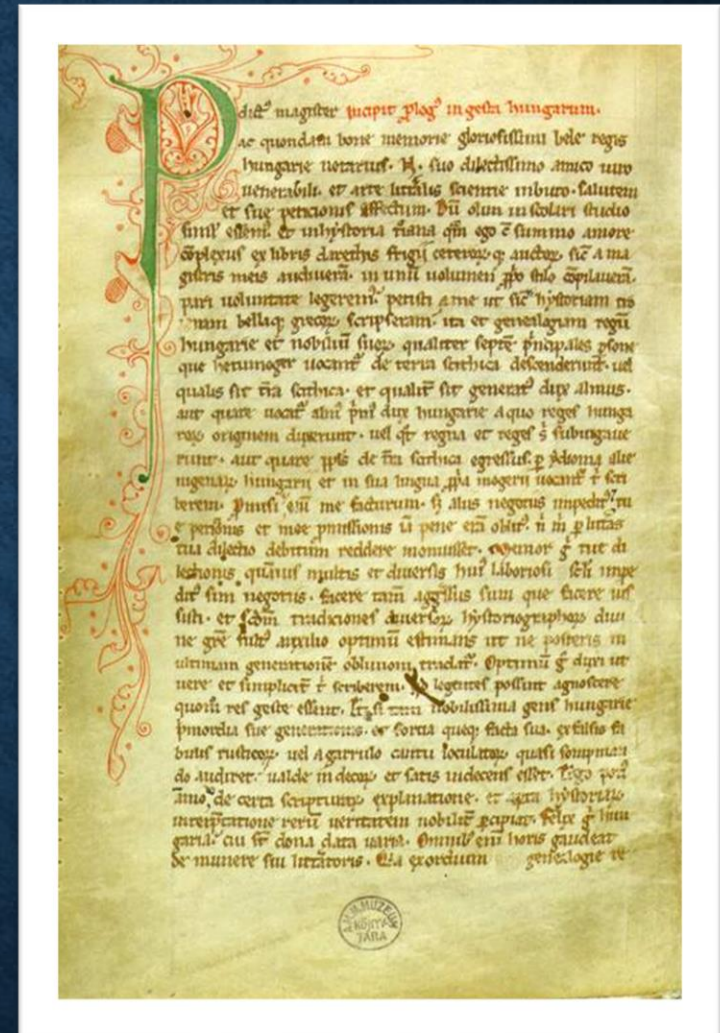 P dict⁹ magister incipit ꝓlog⁹ in gesta hungarum.
ac quondam bone memorie gloriosissimi bele regis
hungarie notarius. N. suo dilectissimo amico uiro
uenerabili. et arte litt̄alis scientie inbuto. salutem
et sue peticionis effectum. Dū olim in scolari studio
simul essem⁹ et in hystoria t̄iana q̄m ego cū summo amore
cōplexus ex libris daretis frigii ceteroꝝ q̨ auctoꝝ, sic̄ a ma
gistris meis audiuerā. in unū uolumen ꝓp̄o stilo cōpilauerā.
pari uoluntate legerem⁹. petisti a me ut sic̄ hystoriam tro
ianam bellaq̨ grecoꝝ scripseram. ita et genealogiam regū
hungarie et nobiliū suoꝝ, qualiter septē p̄ncipales ꝑsone
que hetumoger uocant᷑ de terra scithica descenderunt. uel
qualis sit t̄ra scithica. et qualit᷑ sit generat⁹ dux almus.
aut quare uocat᷑ alm⁹ p̄m⁹ dux hungarie a quo reges hunga
roꝝ originem duxerunt. uel q̊t regna et reges s̄ subiugaue
runt. aut quare ppl̄s de t̄ra scithica egressus. ꝑ ydioma alie
nigenaꝝ hungarii et in sua lingua ꝓp̄a mogerii uocant᷑ t̄ scri
berem. Promisi etiā me facturum. sꝫ aliis negotiis impedit⁹ tu
e peticionis et mee ꝓmissionis iā pene erā oblit⁹. n̄ m̄ ꝑ litt̄as
tua dilectio debitum reddere monuisset. Memor ḡ tue di
lectionis, quāuis multis et diuersis hui⁹ laboriosi scl̄i impe
dit⁹ sim negotiis. facere tam̄ aggressus sum que facere ius
sisti. et scd̄m traditiones diuersoꝝ hystoriographoꝝ diui
ne gr̄e fult⁹ auxilio optimū estimans ut ne posteris in
ultimam generationē obliuioni tradat᷑. Optimū ḡ duxi ut
uere et simplicit᷑ t̄ scriberem. qd̄ legentes possint agnoscere
quom̊ res geste essent. Et si tam nobilissima gens hungarie
p̄mordia sue generationis. et fortia queq̨ facta sua. ex falsis fa
bulis rusticoꝝ. uel a garrulo cantu ioculatoꝝ quasi sompnian
do audiret. ualde indecoꝝ et satis indecens esset. Ergo poti⁹
āmo, de certa scripturaꝝ explanatione. et aꝑta hystoriaꝝ
interp̄tatione reꝝ ueritatem nobilit᷑ ꝑcipiat. Felix ḡ hun
garia. cui st̄ dona data uaria. Omnibꝫ eni horis gaudeat
de munere sui litt̄atoris. Quia exordium genealogie re
A.M.N.MUZEUM
KÖNYV
TÁRA